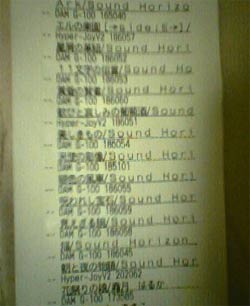 Ark/Sound Horizo
DAM G-100 165040
エルの楽園 [→side:E→]/
Hyper-JoyV2 186057
魔女の/Sound Hori
DAM G-100 186052
11文字の伝言/Sound Ho
DAM G-100 186055
黄昏の賢者/Sound Hori
DAM G-100 186060
歓びと哀しみの葡萄酒/Sound
Hyper-JoyV2 186051
美しきもの/Sound Hori
DAM G-100 186054
天使の彫像/Sound Hori
DAM G-100 185101
緋色の風車/Sound Hori
DAM G-100 186055
呪われし宝石/Sound Hor
DAM G-100 186059
見えざる腕/Sound Hori
DAM G-100 186058
Sound Horizon
DAM G-100 186045
朝と夜の物語/Sound Hor
Hyper-JoyV2 202062
花祭りの娘/霜月 はるか
DAM G-100 173585